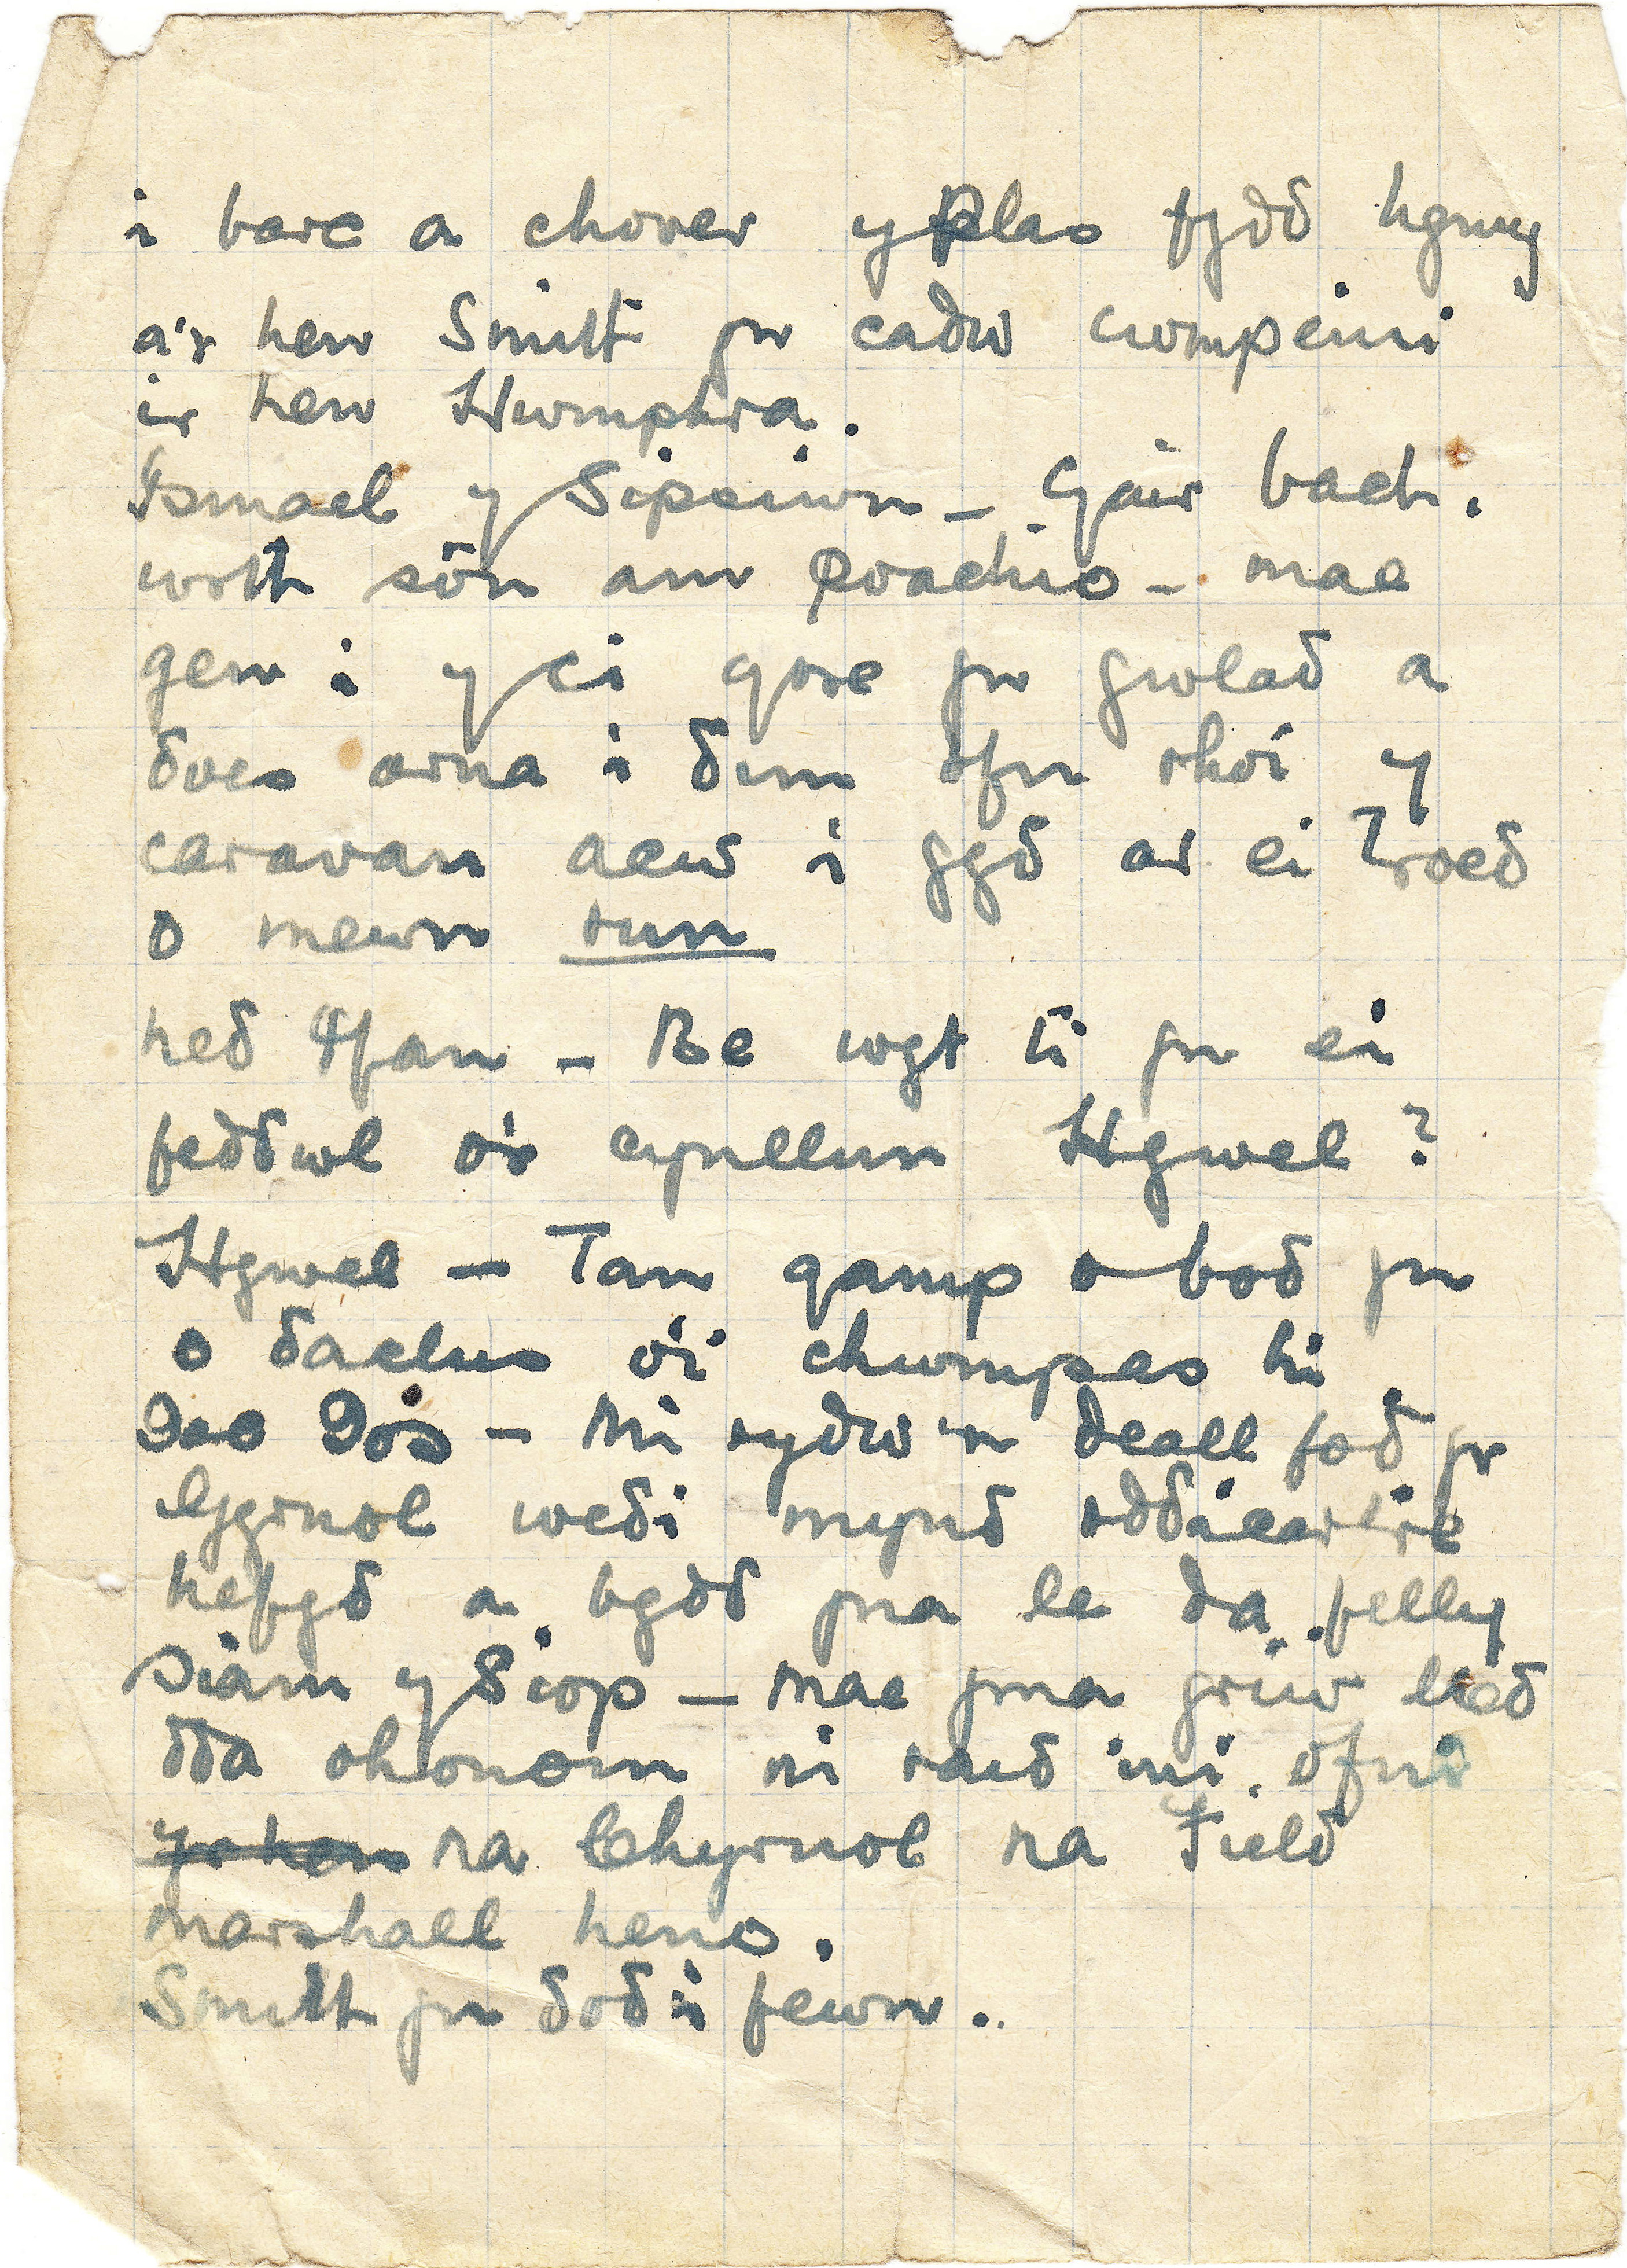 i barc a chover y Plas fydd hynny
a'r hen Smith yn cadw cwmpeini
ir hen Hwmphra.
Ismael y Sipsiwn – Gair bach.
wrth sôn am poachio – mae
gen i y ci gore yn gwlad a
does arna i dim ofn rhoi y
caravan aew i gyd ar ei droed
o mewn run
Ned Ifan – Be wyt ti yn ei
feddwl o'r cynllun Hywel?
Hywel – Tan gamp o bod yn
o daclus o'i chwmpas hi
Ned Dos – Mi rydw 'n deall fod yr
Cyrnol wedi mynd oddicartre
hefyd a bydd yna le da felly
Siâm y Siop – Mae yma griw lled
dda ohonom ni raid ini ofni
na Chyrnol na Field
marshall heno.
Smith yn dod i fewn.